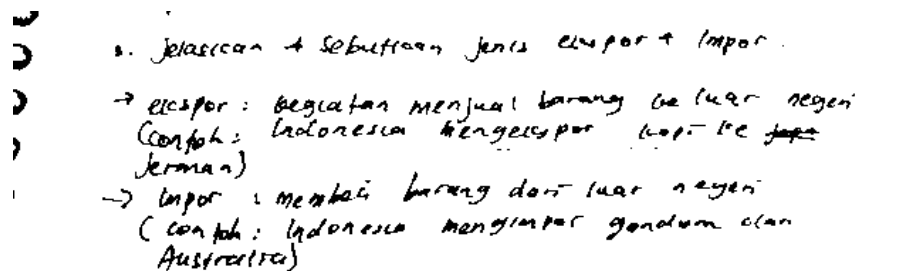 1. Jelaskan + Sebutkan jenis ekspor + impor.
→ ekspor : kegiatan menjual barang ke luar negeri
(contoh : Indonesia mengekspor kopi ke
Jerman)
→ impor : membeli barang dari luar negeri
(contoh : Indonesia mengimpor gandum dari
Australia)